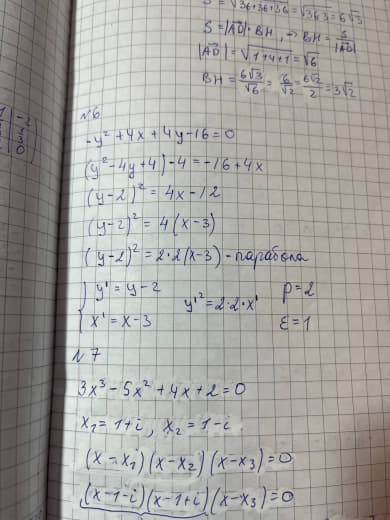 S = √36+36+36 = √36·3 = 6√3
S = |AD|·BH, ⇒ BH = S/|AD|
|AD| = √1+4+1 = √6
BH = 6√3/√6 = 6/√2 = 6√2/2 = 3√2
№6
-y² + 4x + 4y - 16 = 0
(y² - 4y + 4) - 4 = -16 + 4x
(y-2)² = 4x - 12
(y-2)² = 4(x-3)
(y-2)² = 2·2(x-3) - парабола
{ y' = y - 2    y'² = 2·2·x'    p = 2
x' = x - 3    ε = 1
№7
3x³ - 5x² + 4x + 2 = 0
x₁ = 1+i, x₂ = 1-i
(x-x₁)(x-x₂)(x-x₃) = 0
(x-1-i)(x-1+i)(x-x₃) = 0